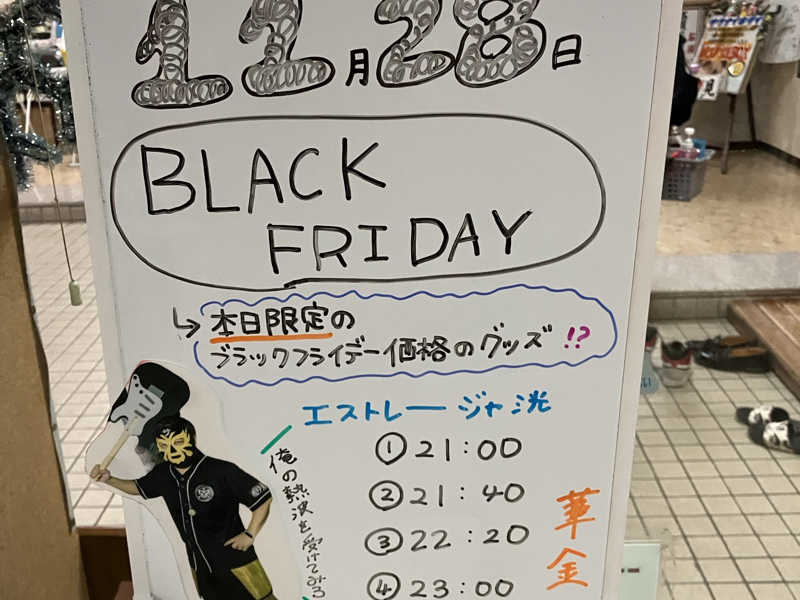 11月28日
BLACK
FRIDAY
本日限定の
ブラックフライデー価格のグッズ!?
エストレージャ洸
俺の熱波を受けてみろ
①21:00
②21:40
③22:20
④23:00
華金